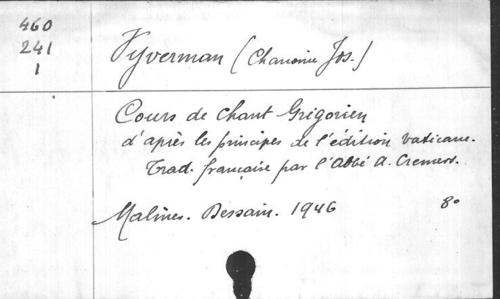 460
241
1
Vyverman (Chanoine Jos.)
Cours de chant Grégorien
d'après les principes de l'édition vaticane.
Trad. française par l'Abbé A. Cremers.
Malines. Dessain. 1946 8°